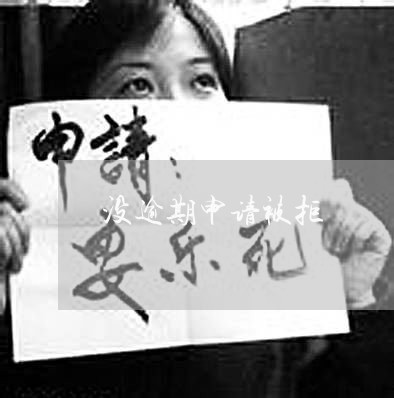 申請：
没逾期申请被拒
安乐死